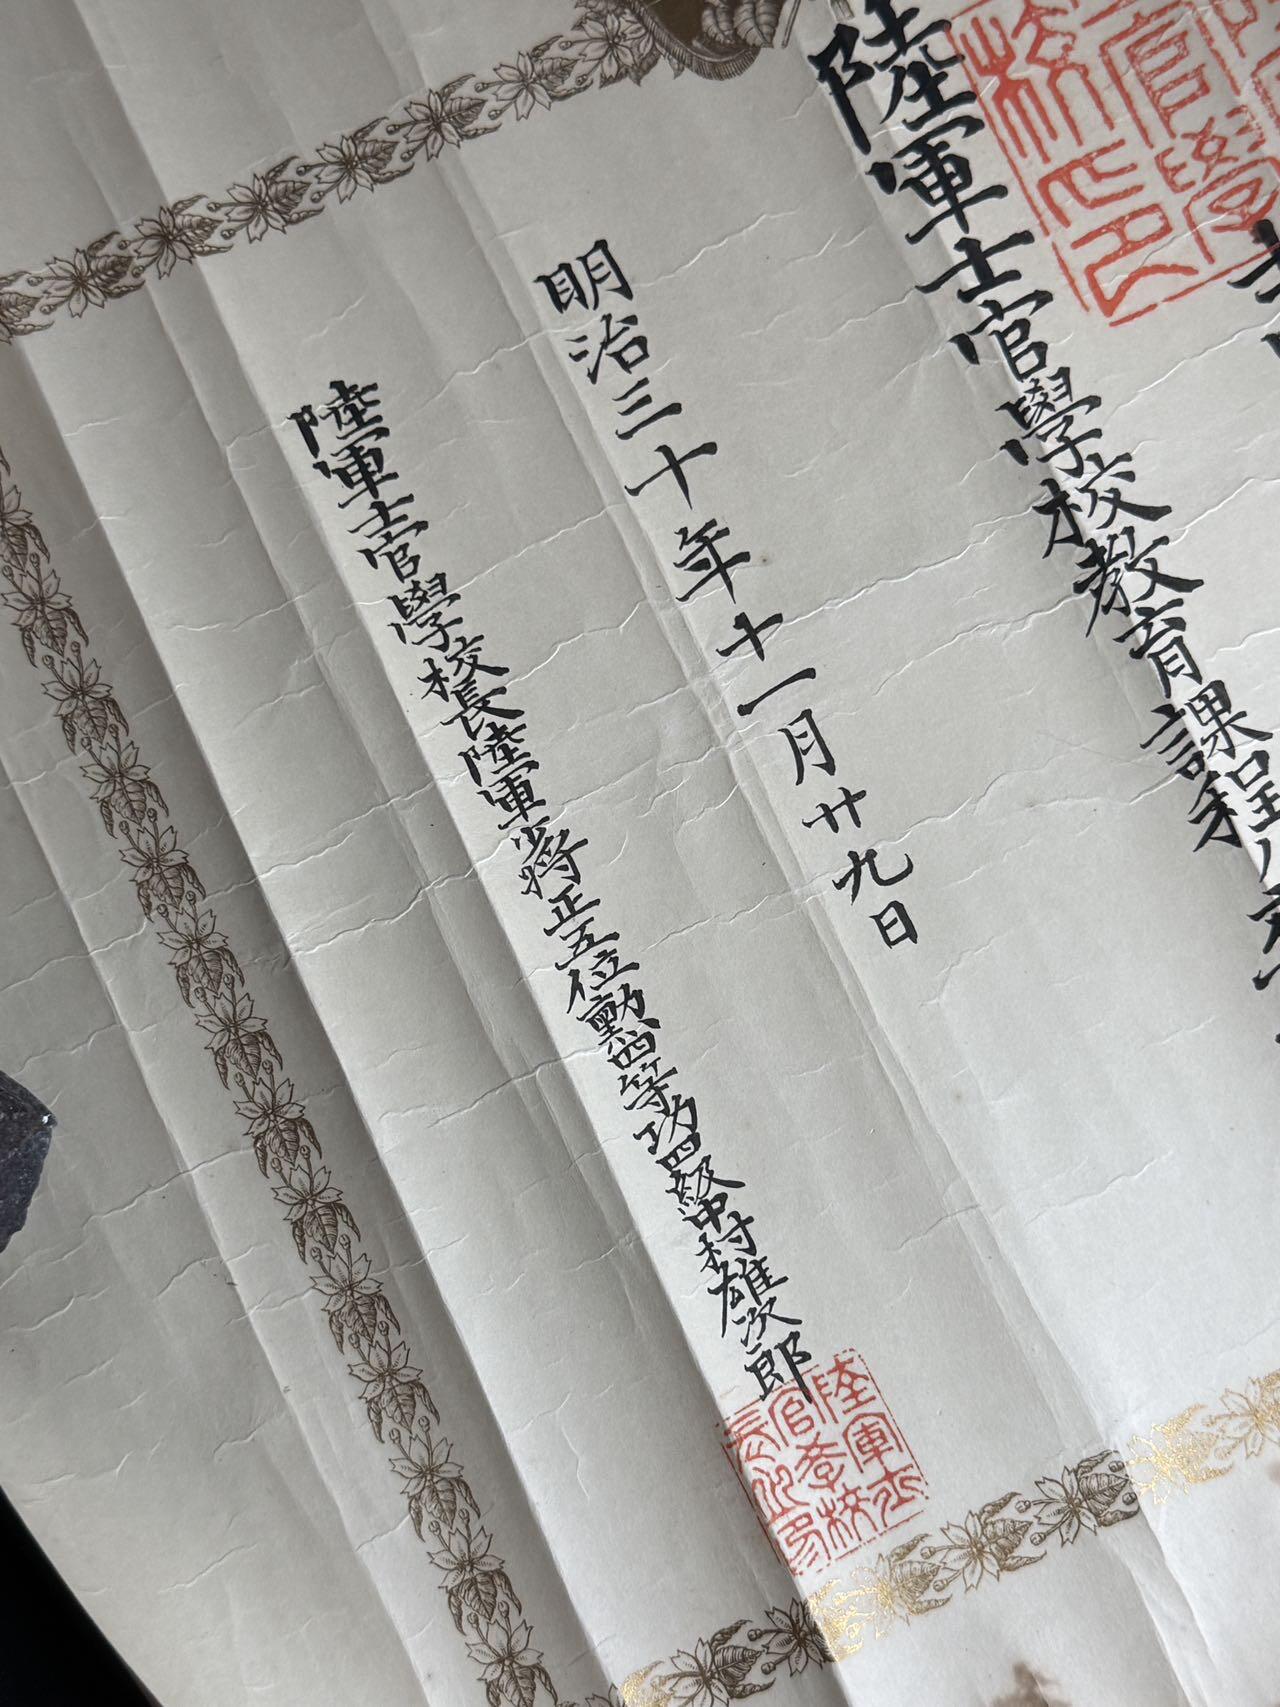 陸軍士官學校教育課程
明治三十年十一月廿九日
陸軍士官學校長陸軍少將正五位勳四等功四級中村雄次郎
陸軍士
官學校
長之印